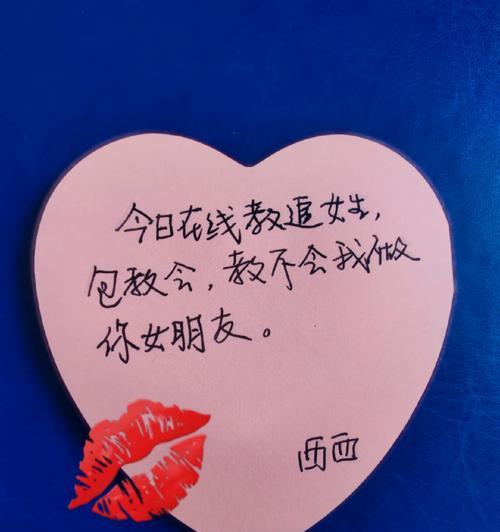 今日在线教追女生,
包教会,教不会我做
你女朋友。
西西